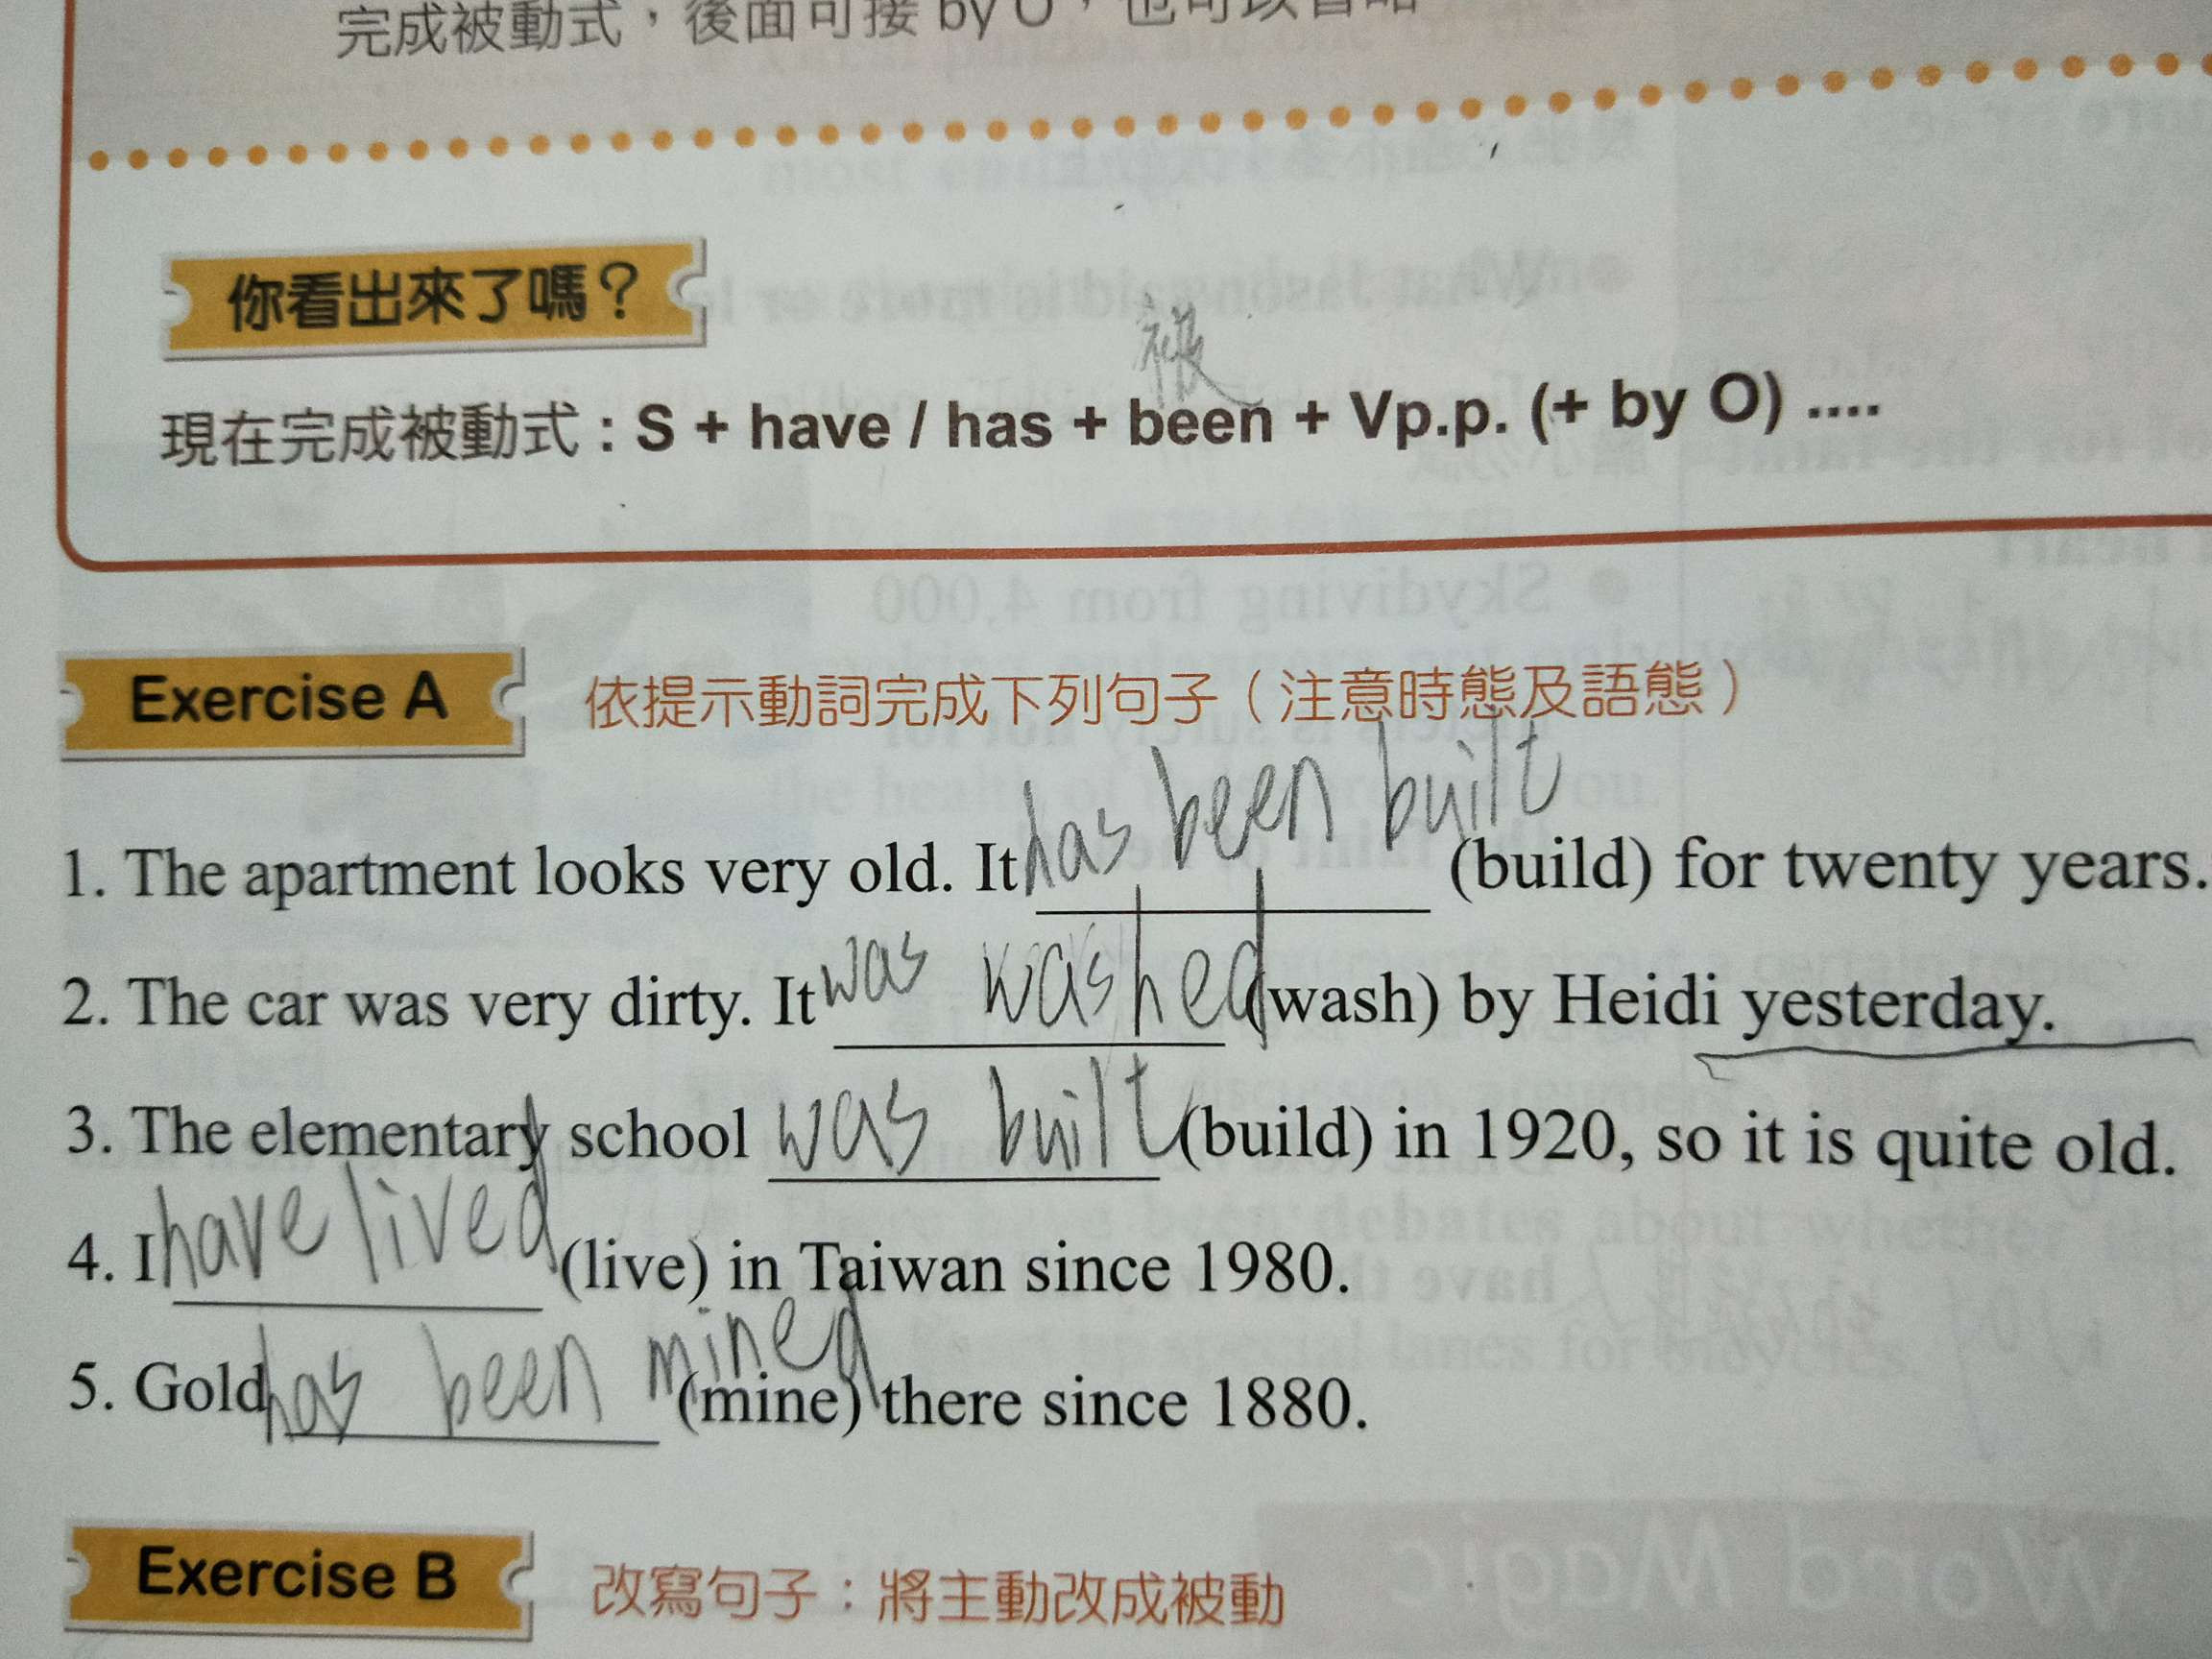 完成被動式,後面可接 by O,也可以省略
你看出來了嗎?
被
現在完成被動式:S + have / has + been + Vp.p. (+ by O) ....
Exercise A 依提示動詞完成下列句子(注意時態及語態)
1. The apartment looks very old. It has been built (build) for twenty years.
2. The car was very dirty. It was washed (wash) by Heidi yesterday.
3. The elementary school was built (build) in 1920, so it is quite old.
4. I have lived (live) in Taiwan since 1980.
5. Gold has been mined (mine) there since 1880.
Exercise B 改寫句子:將主動改成被動
Word Magic